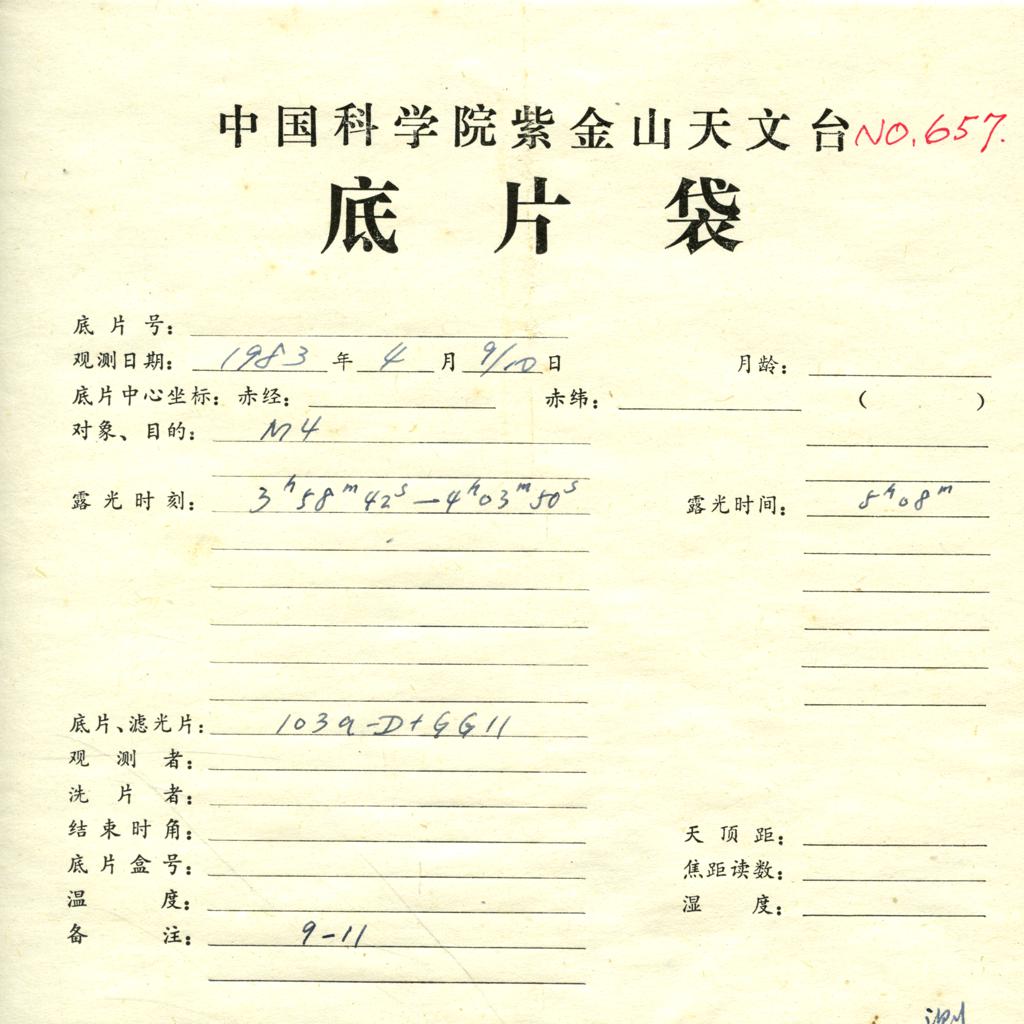 中国科学院紫金山天文台 NO.657.
底片袋
底片号:
观测日期: 1983 年 4 月 9/10 日 月龄:
底片中心坐标: 赤经: 赤纬: ( )
对象、目的: M4
露光时刻: 3h58m42s—4h03m50s 露光时间: 5h08m
底片、滤光片: 103a-D+GG11
观测者:
洗片者:
结束时角: 天顶距:
底片盒号: 焦距读数:
温度: 湿度:
备注: 9-11
测